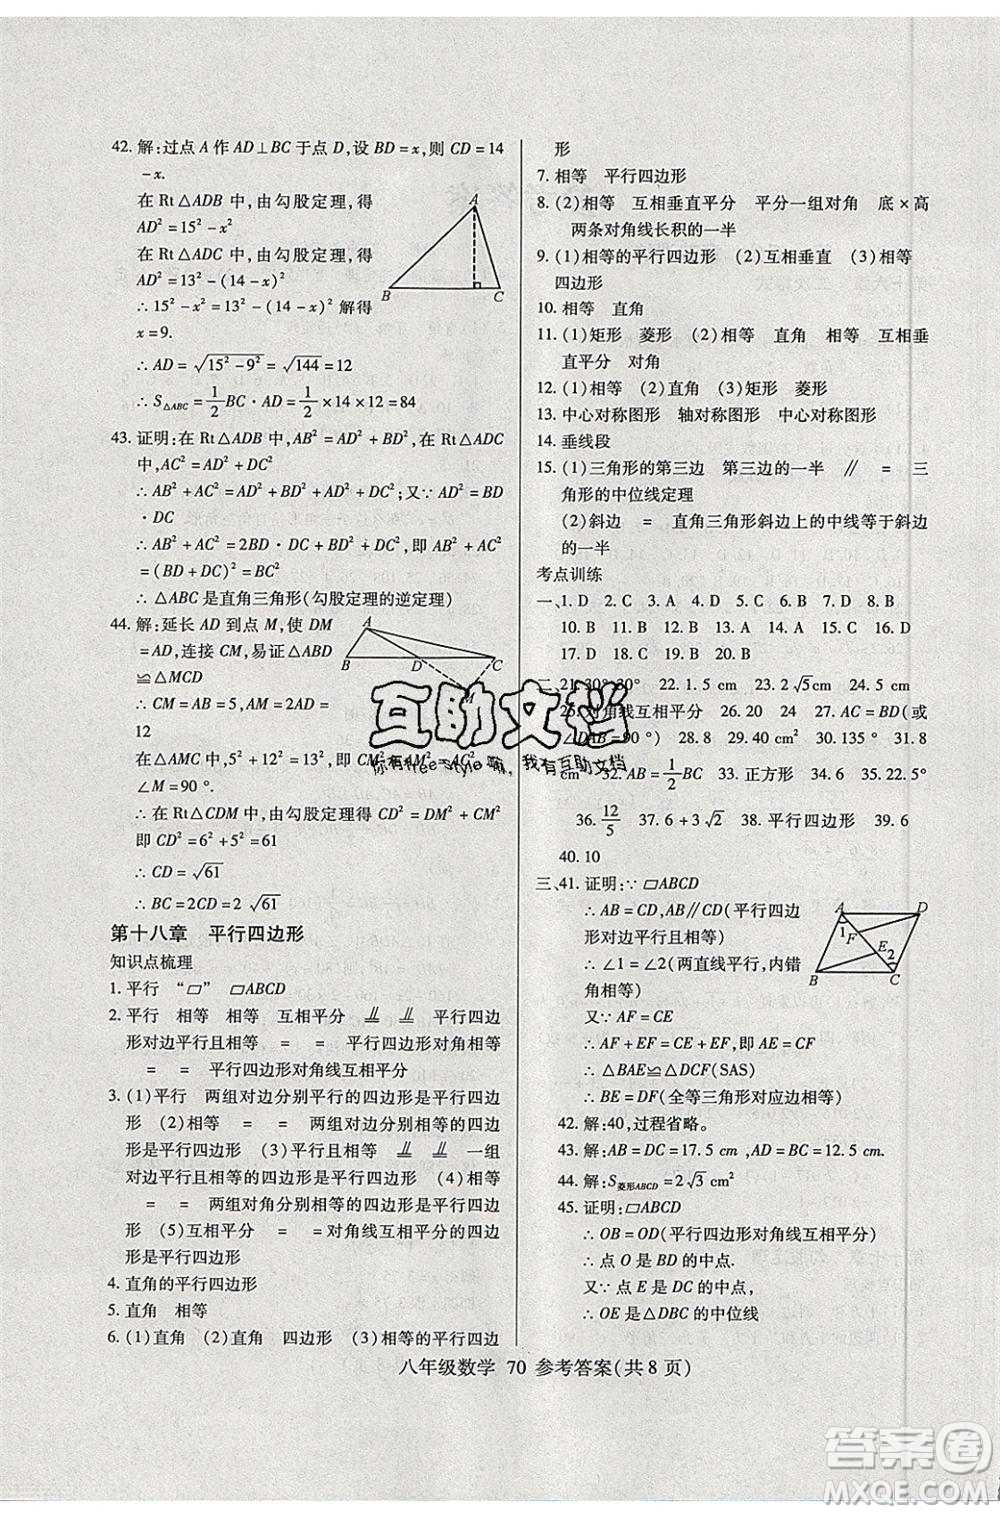 42. 解:过点 A 作 AD⊥BC 于点 D,设 BD = x,则 CD = 14
- x.
在 Rt△ADB 中,由勾股定理得
AD² = 15² - x²
在 Rt△ADC 中,由勾股定理得
AD² = 13² - (14 - x)²
∴ 15² - x² = 13² - (14 - x)² 解得
x = 9.
∴ AD = √(15² - 9²) = √144 = 12
∴ S△ABC = 1/2 BC · AD = 1/2 × 14 × 12 = 84
A
B
C
43. 证明:在 Rt△ADB 中,AB² = AD² + BD²,在 Rt△ADC
中,AC² = AD² + DC²
∴ AB² + AC² = 2AD² + BD² + DC²;又∵ AD² = BD
· DC
∴ AB² + AC² = 2BD · DC + BD² + DC²,即 AB² + AC²
= (BD + DC)² = BC²
∴ △ABC 是直角三角形(勾股定理的逆定理)
44. 解:延长 AD 到点 M,使 DM
= AD,连接 CM,易证△ABD
≌△MCD
∴ CM = AB = 5,AM = 2AD =
12
在△AMC 中,5² + 12² = 13²,即 CM² + AM² = AC²
∠M = 90 °.
∴ 在 Rt△CDM 中,由勾股定理得 CD² = DM² + CM²
即 CD² = 6² + 5² = 61
∴ CD = √61
∴ BC = 2CD = 2 √61
A
B
D
C
第十八章 平行四边形
知识点梳理
1. 平行 “▱” ▱ABCD
2. 平行 相等 相等 互相平分 ∥ ∥ 平行四边
形对边平行且相等 = = 平行四边形对角相等
= = 平行四边形对角线互相平分
3. (1)平行 两组对边分别平行的四边形是平行四边
形 (2)相等 = = 两组对边分别相等的四边
形是平行四边形 (3)平行且相等 ∥ ∥ 一组
对边平行且相等的四边形是平行四边形 (4)相等
= = 两组对角分别相等的四边形是平行四边
形 (5)互相平分 = = 对角线互相平分的四边
形是平行四边形
4. 直角的平行四边形
5. 直角 相等
6. (1)直角 (2)直角 四边形 (3)相等的平行四边
形
7. 相等 平行四边形
8. (2)相等 互相垂直平分 平分一组对角 底×高
两条对角线长积的一半
9. (1)相等的平行四边形 (2)互相垂直 (3)相等
四边形
10. 相等 直角
11. (1)矩形 菱形 (2)相等 直角 相等 互相垂
直平分 对角
12. (1)相等 (2)直角 (3)矩形 菱形
13. 中心对称图形 轴对称图形 中心对称图形
14. 垂线段
15. (1)三角形的第三边 第三边的一半 ∥ = 三
角形的中位线定理
(2)斜边 = 直角三角形斜边上的中线等于斜边
的一半
考点训练
一、1. D 2. C 3. A 4. D 5. C 6. B 7. D 8. B
10. B 11. B 12. D 13. D 14. A 15. A 16. D
17. D 18. C 19. A 20. B
二、21. 30° 22. 1. 5 cm 23. 2√5 cm 24. 5 cm
25. 对角线互相平分 26. 20 27. AC = BD(或
= 90 °) 28. 8 29. 24 cm² 30. 135° 31. 8
cm 32. AB = 1/2 BC 33. 正方形 34. 6 35. 22. 5°
36. 12/5 37. 6 + 3√2 38. 平行四边形 39. 6
40. 10
三、41. 证明:∵ ▱ABCD
∴ AB = CD,AB∥CD(平行四边
形对边平行且相等)
∴ ∠1 = ∠2(两直线平行,内错
角相等)
又∵ AF = CE
∴ AF + EF = CE + EF,即 AE = CF
∴ △BAE≌△DCF(SAS)
∴ BE = DF(全等三角形对应边相等)
A
D
1
F
E
2
B
C
42. 解:40,过程省略。
43. 解:AB = DC = 17. 5 cm ,AD = BC = 12. 5 cm.
44. 解:S菱形ABCD = 2√3 cm²
45. 证明:▱ABCD
∴ OB = OD(平行四边形对角线互相平分)
∴ 点 O 是 BD 的中点.
又∵ 点 E 是 DC 的中点,
∴ OE 是△DBC 的中位线
八年级数学 70 参考答案(共 8 页)
互助文档
你有free style嘛,我有互助文档
答案卷
MXQE.COM